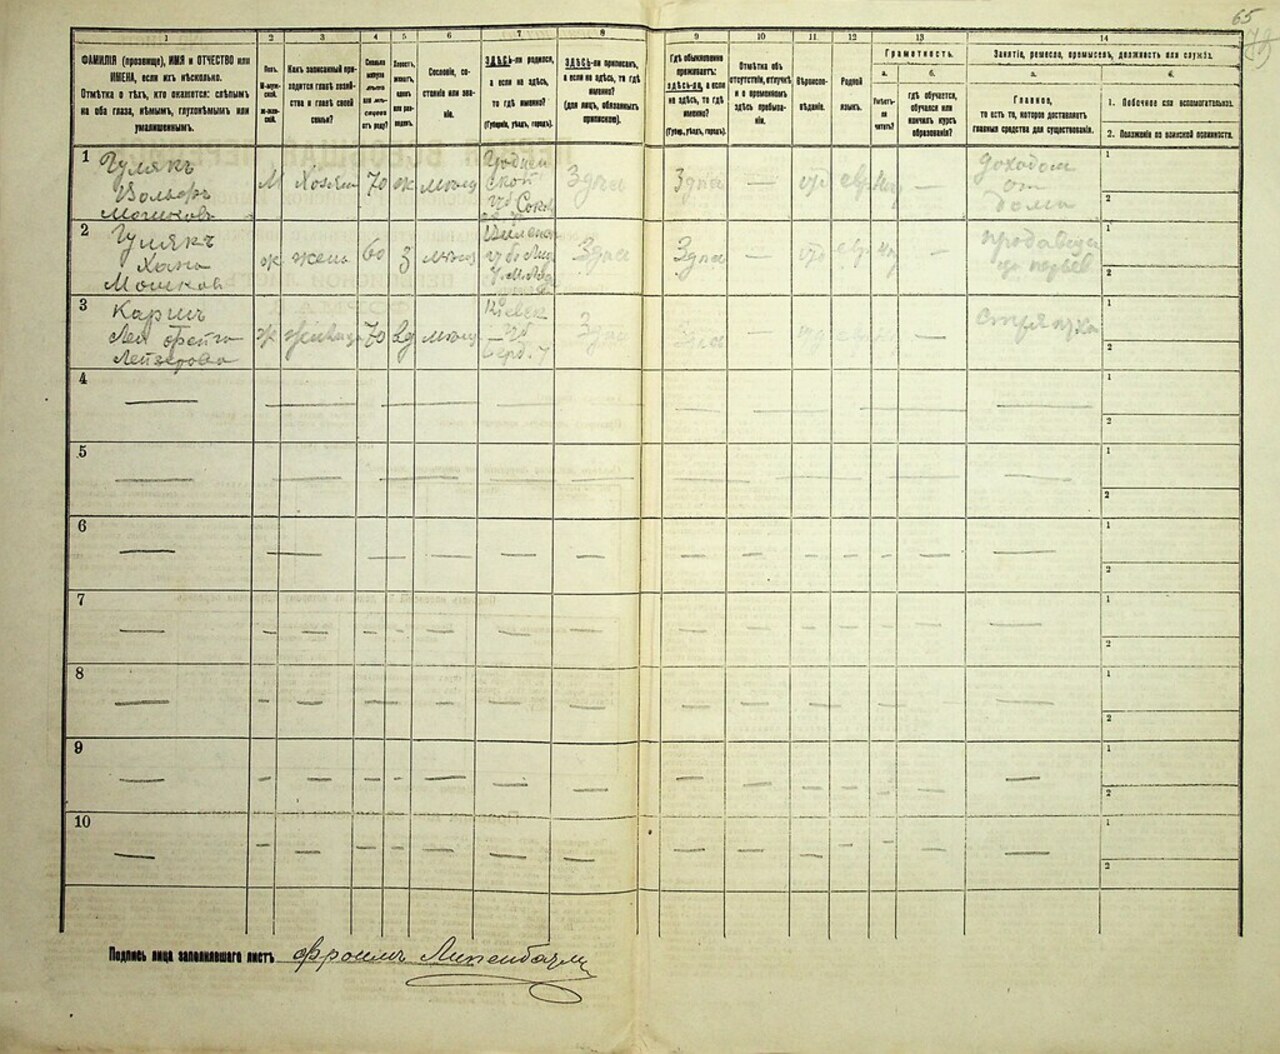 65
1
2
3
4
5
6
7
8
9
10
11
12
13
14
ФАМИЛІЯ (прозвище), ИМЯ и ОТЧЕСТВО или
ИМЕНА, если ихъ нѣсколько.
Отмѣтка о тѣхъ, кто окажется: слѣпымъ
на оба глаза, нѣмымъ, глухонѣмымъ или
умалишеннымъ.
Полъ.
М-мужской.
Ж-женскій.
Какъ записанный приходится главѣ хозяйства и главѣ своей семьи?
Сколько минуло лѣтъ или мѣсяцевъ отъ роду?
Холостъ, женатъ, вдовъ или разведенъ.
Сословіе, состояніе или званіе.
ЗДѢСЬ-ли родился,
а если не здѣсь,
то гдѣ именно?
(Губернія, уѣздъ, городъ).
ЗДѢСЬ-ли приписанъ,
а если не здѣсь, то гдѣ
именно?
(для лицъ, обязанныхъ
припискою).
Гдѣ обыкновенно
проживаетъ:
здѣсь-ли, а если
не здѣсь, то гдѣ
именно?
(Губер., уѣздъ, городъ).
Отмѣтка объ
отсутствіи, отлучкѣ
и о временномъ
здѣсь пребываніи.
Вѣроисповѣданіе.
Родной
языкъ.
Грамотность.
а.
б.
Умѣетъ-ли
читать?
гдѣ обучается,
обучался или
кончилъ курсъ
образованія?
Занятіе, ремесло, промыселъ, должность или служба.
а.
б.
Главное,
то есть то, которое доставляетъ
главныя средства для существованія.
1. Побочное или вспомогательное.
2. Положеніе по воинской повинности.
1
Гулякъ
Вольфъ
Мошковъ
М
Хозяинъ
70
ж
мѣщ
Гродненской
губ Сокол
Здѣсь
Здѣсь
—
евр
—
доходом
от
дома
1
2
2
Гулякъ
Хана
Мошков
ж
жена
60
з
мѣщ
Здѣсь
Здѣсь
—
евр
—
1
2
3
Лея
Лейзерова
ж
70
вд
мѣщ
Кіевск
губ
Берд. у
Здѣсь
Здѣсь
—
—
стряпуха
1
2
4
1
2
5
1
2
6
1
2
7
1
2
8
1
2
9
1
2
10
1
2
Подпись лица заполнявшаго листъ Фроимъ